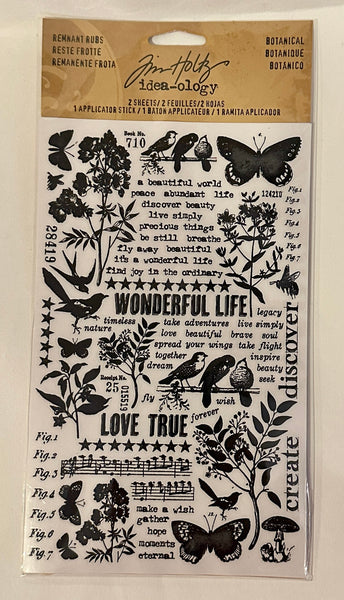 REMNANT RUBS
RESTE FROTTE
REMANENTE FROTA
Tim Holtz
idea-ology
2 SHEETS/2 FEUILLES/2 HOJAS
1 APPLICATOR STICK/1 BATON APPLICATEUR/1 RAMITA APLICADOR
BOTANICAL
BOTANIQUE
BOTANICO
Book No.
710
a beautiful world
peace abundant life
discover beauty
live simply
precious things
be still breathe
fly away beautiful
it's a wonderful life
find joy in the ordinary
124210
Fig.1
Fig.2
Fig.3
Fig.4
Fig.5
Fig.6
Fig.7
28419
WONDERFUL LIFE
timeless take adventures live simply
nature love beautiful brave soul
spread your wings take flight
legacy
inspire
beauty
seek
together
dream
discover
Receipt No.
25
015519
fly
wish
forever
LOVE TRUE
create
Fig.1
Fig.2
Fig.3
Fig.4
Fig.5
Fig.6
Fig.7
make a wish
gather
hope
moments
eternal